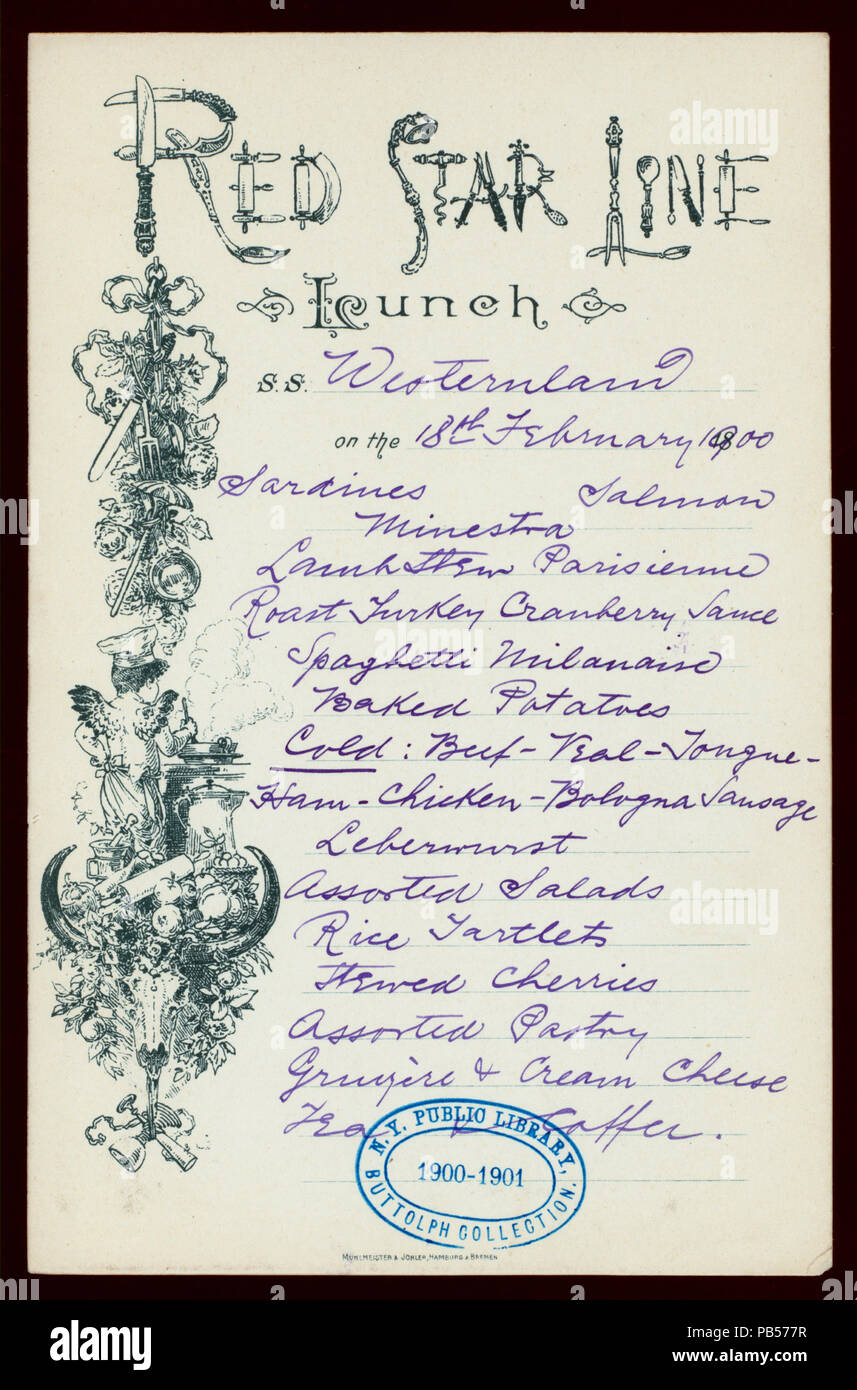 RED STAR LINE
Lunch
S.S. Westernland
on the 18th February 1900
Sardines Salmon
Minestra
Lamb Stew Parisienne
Roast Turkey Cranberry Sauce
Spaghetti Milanaise
Baked Potatoes
Cold: Beef - Veal - Tongue -
Ham - Chicken - Bologna Sausage
Leberwurst
Assorted Salads
Rice Tartlets
Stewed Cherries
Assorted Pastry
Gruyère & Cream Cheese
Tea & Coffee.
N.Y. PUBLIC LIBRARY,
1900-1901
BUTTOLPH COLLECTION.
MÜHLMEISTER & JOHLER, HAMBURG & BREMEN
alamy
alamy
alamy
alamy
a
a
a
alamy
Image ID: PB577R
www.alamy.com